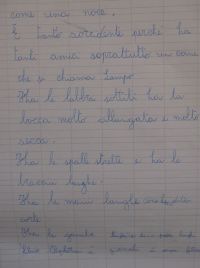 come una noce.
È tanto sorridente perché ha
tanti amici soprattutto un cane
che si chiama Lampo
Ha le labbra sottili ha la
bocca molto allungata e molto
secca.
Ha le spalle strette e ha le
braccia lunghe.
Ha le mani lunghe con le dita
corte
Ha le gambe lunghe e